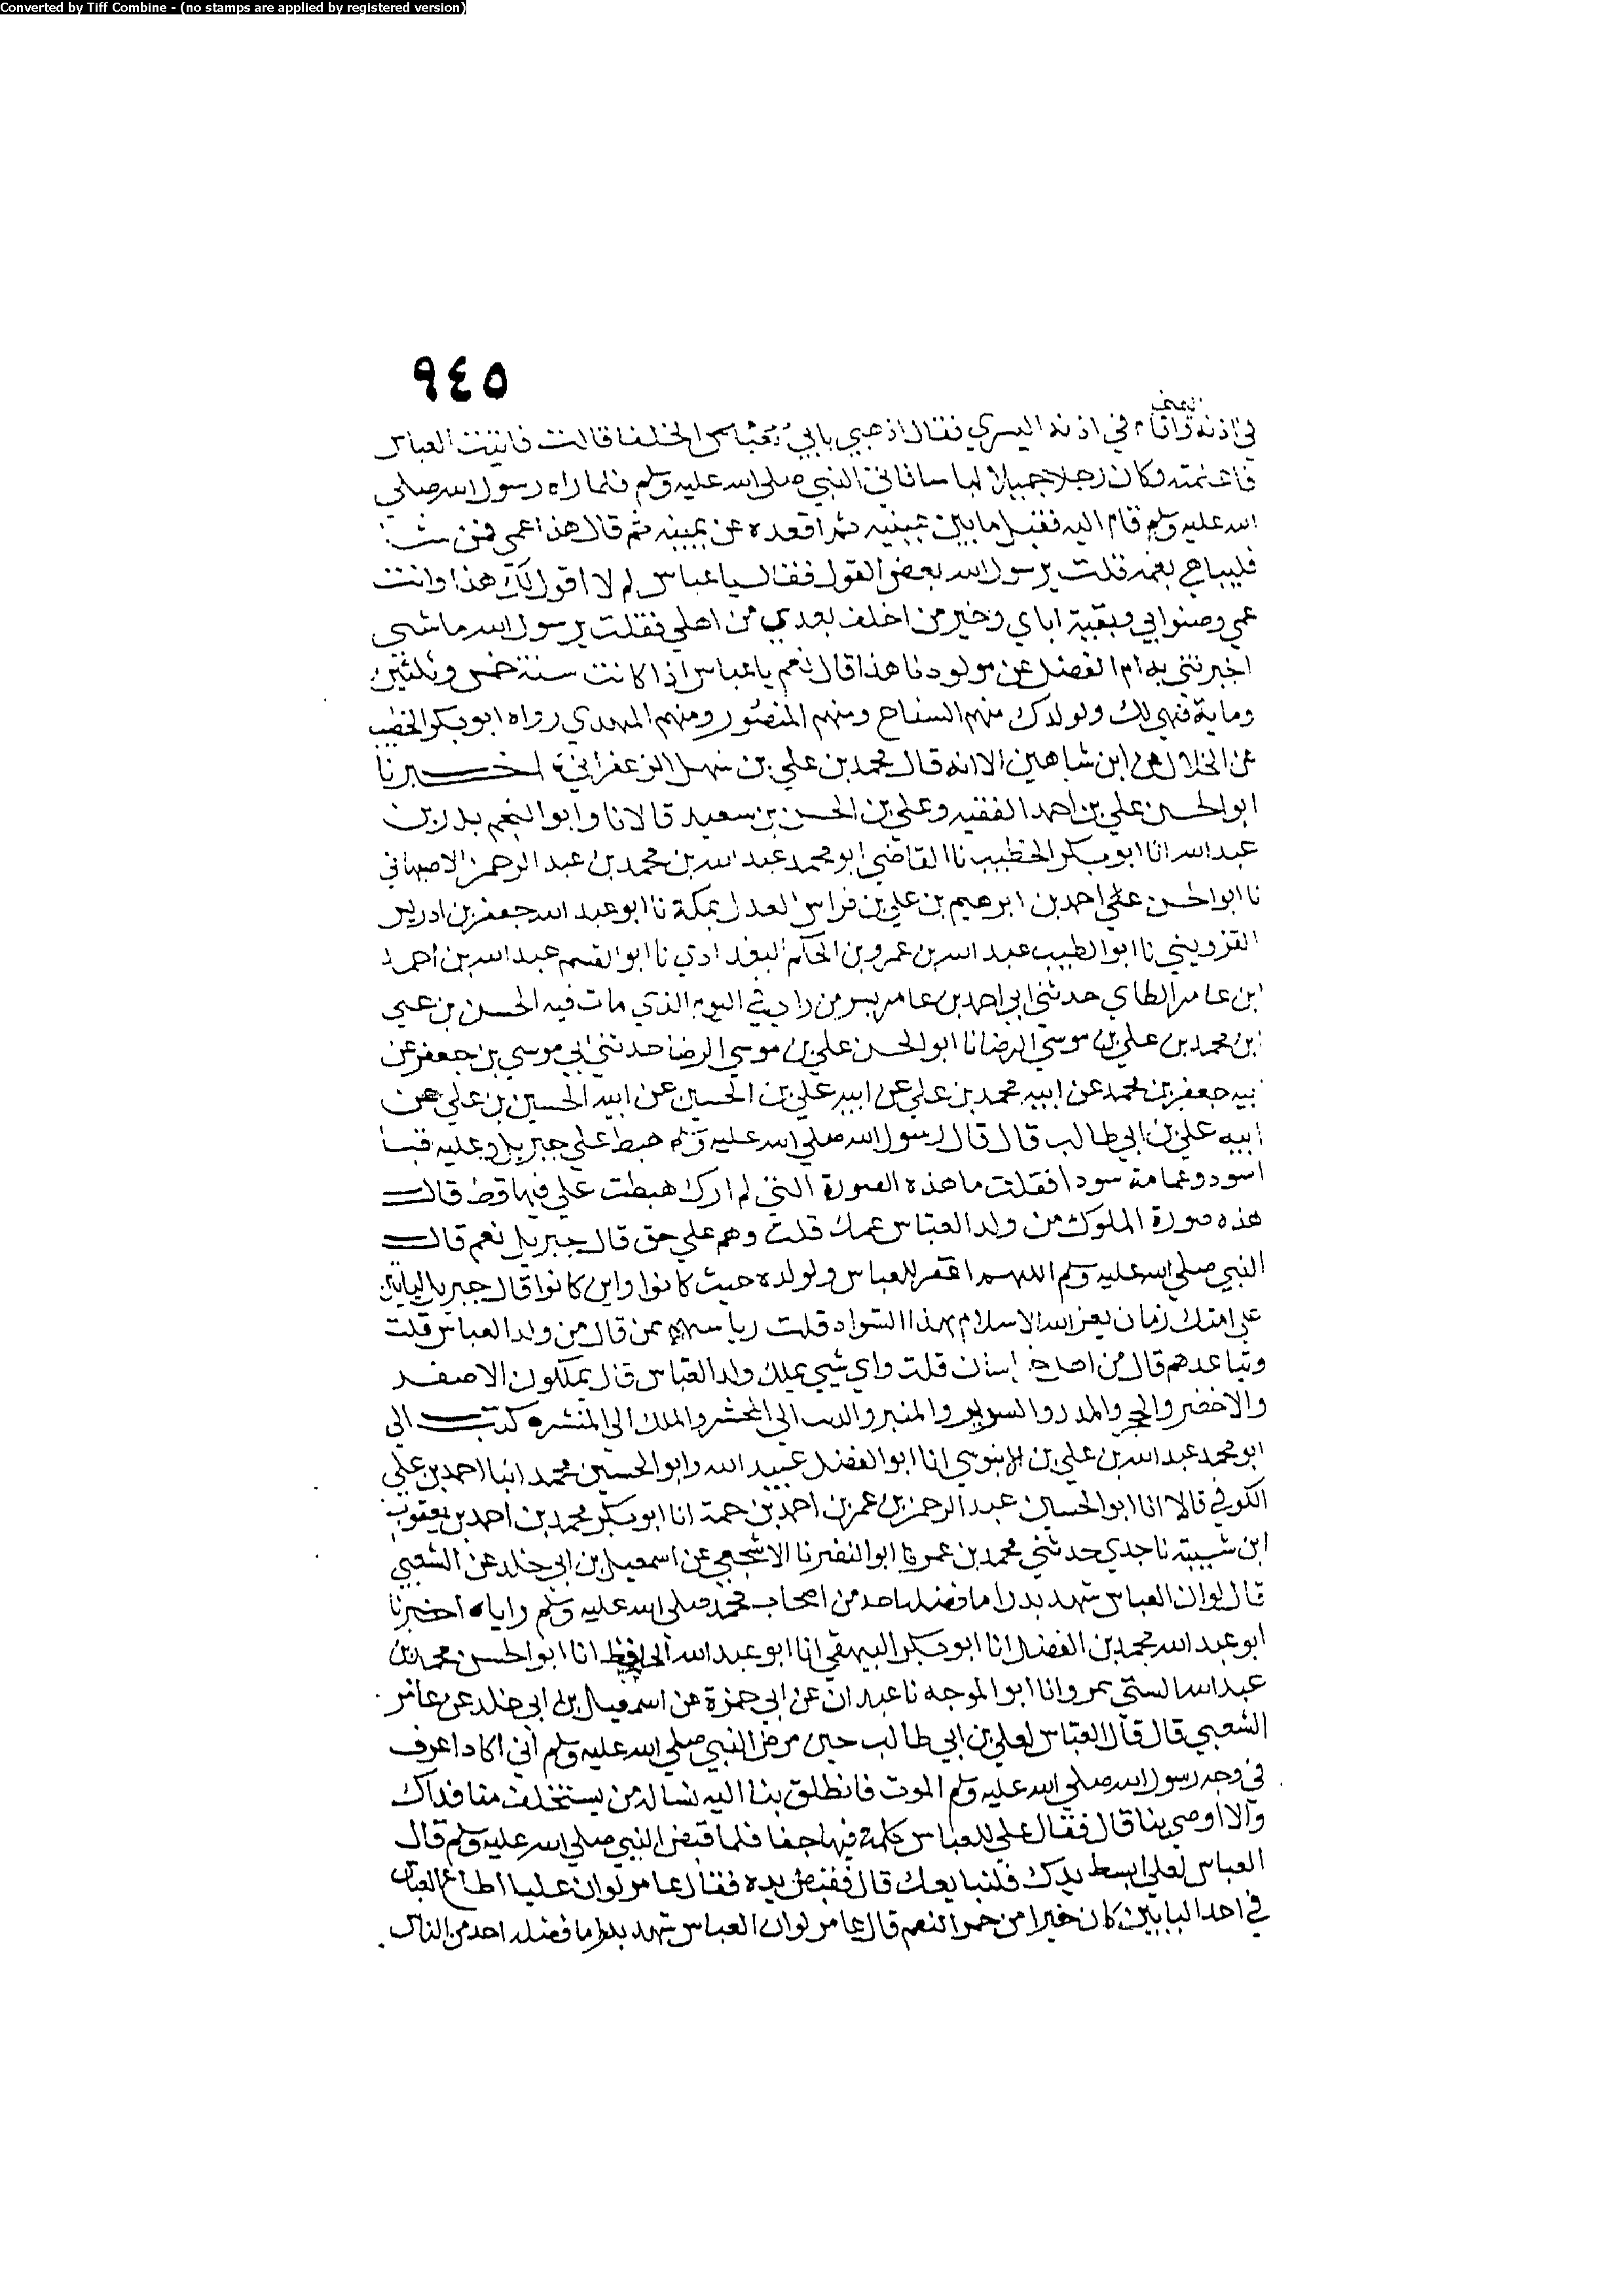 Converted by Tiff Combine - (no stamps are applied by registered version)
٩٤٥
اليمنى
في اذنه واقام في اذنه اليسرى فقال اذهبي بابي الخلفا قالت فاتيت العباس
فاعلمته وكان رجلا جميلا لباسا فاتى النبي صلى الله عليه وسلم فلما راه رسول الله صلى
الله عليه وسلم قام اليه فقبل ما بين عينيه ثم اقعده عن يمينه ثم قال هذا عمي فمن شا
فليباهي بعمه قلت يرسول الله بعض القول فقال يا عباس لم لا اقول لك هذا وانت
عمي وصنو ابي وبقية اباي وخير من اخلف بعدي من اهلي فقلت يرسول الله ما شي
اخبرتني به ام الفضل عن مولودنا هذا قال نعم يا عباس اذا كانت سنة خمس وثلثين
وماية فهي لك ولولدك منهم السفاح ومنهم المنصور ومنهم المهدي رواه ابو بكر الخطيب
عن الخلال عن ابن شاهين الا انه قال محمد بن علي بن سهل الزعفراني اخبرنا
ابو الحسن علي بن احمد الفقيه وعلي بن الحسن بن سعيد قالا نا وابو النجم بدر بن
عبد الله انا ابو بكر الخطيب نا القاضي ابو محمد عبد الله بن محمد بن عبد الرحمن الاصبهاني
نا ابو الحسن علي احمد بن ابرهيم بن علي بن فراس العدل بمكة نا ابو عبد الله جعفر بن ادريس
القزويني نا ابو الطيب عبد الله بن عمرو بن الحكم البغدادي نا ابو القسم عبد الله بن احمد
ابن عامر الطاي حدثني ابي احمد بن عامر بسر من راى في اليوم الذي مات فيه الحسن بن علي
بن محمد بن علي بن موسى الرضا نا ابو الحسن علي بن موسى الرضا حدثني ابي موسى بن جعفر عن
ابيه جعفر بن محمد عن ابيه محمد بن علي عن ابيه علي بن الحسين عن ابيه الحسين بن علي عن
ابيه علي بن ابي طالب قال قال رسول الله صلى الله عليه وسلم هبط علي جبريل وعليه قبا
اسود وعمامة سودا فقلت ما هذه الصورة التي لم ارك هبطت علي فيها قط قال
هذه صورة الملوك من ولد العباس عمك قلت وهم على حق قال جبريل نعم قال
النبي صلى الله عليه وسلم اللهم اغفر للعباس ولولده حيث كانوا واين كانوا قال جبريل لياتين
على امتك زمان يعز الله الاسلام بهذا السواد قلت رياستهم ممن قال من ولد العباس قلت
وتباعدهم قال من اهل خراسان قلت واي شيي يملك ولد العباس قال يملكون الاصفر
والاخضر والحجر والمدر والسرير والمنبر والدنيا الى المحشر والملك الى المنشر كتب الي
ابو محمد عبد الله بن علي بن الابنوسي انا ابو الفضل عبيد الله وابو الحسين محمد ابنا احمد بن علي
الكوفي قالا انا ابو الحسين عبد الرحمن بن عمر بن احمد بن حمة انا ابو بكر محمد بن احمد بن يعقوب
ابن شيبة نا جدي حدثني محمد بن عمر نا ابو النضر نا الاشجعي عن اسمعيل بن ابي خلد عن الشعبي
قال لو ان العباس شهد بدرا ما فضله احد من اصحاب محمد صلى الله عليه وسلم رايا اخبرنا
ابو عبد الله محمد بن الفضل انا ابو بكر البيهقي انا ابو عبد الله الحافظ انا ابو الحسن محمد بن
عبد الله السني بمرو انا ابو الموجه نا عبدان عن ابي حمزة عن اسمعيل بن ابي خلد عن عامر
الشعبي قال قال العباس لعلي بن ابي طالب حين مرض النبي صلى الله عليه وسلم اني اكاد اعرف
في وجه رسول الله صلى الله عليه وسلم الموت فانطلق بنا اليه نساله من يستخلف منا فذاك
والا اوصى بنا قال فقال علي للعباس كلمة فيها جفا فلما قبض النبي صلى الله عليه وسلم قال
العباس لعلي ابسط يدك فلنبايعك قال فقبض يده فقال عامر لو ان عليا اطاع العباس
في احد البابين كان خيرا من حمر النعم قال عامر لو ان العباس شهد بدرا ما فضله احد من الناس